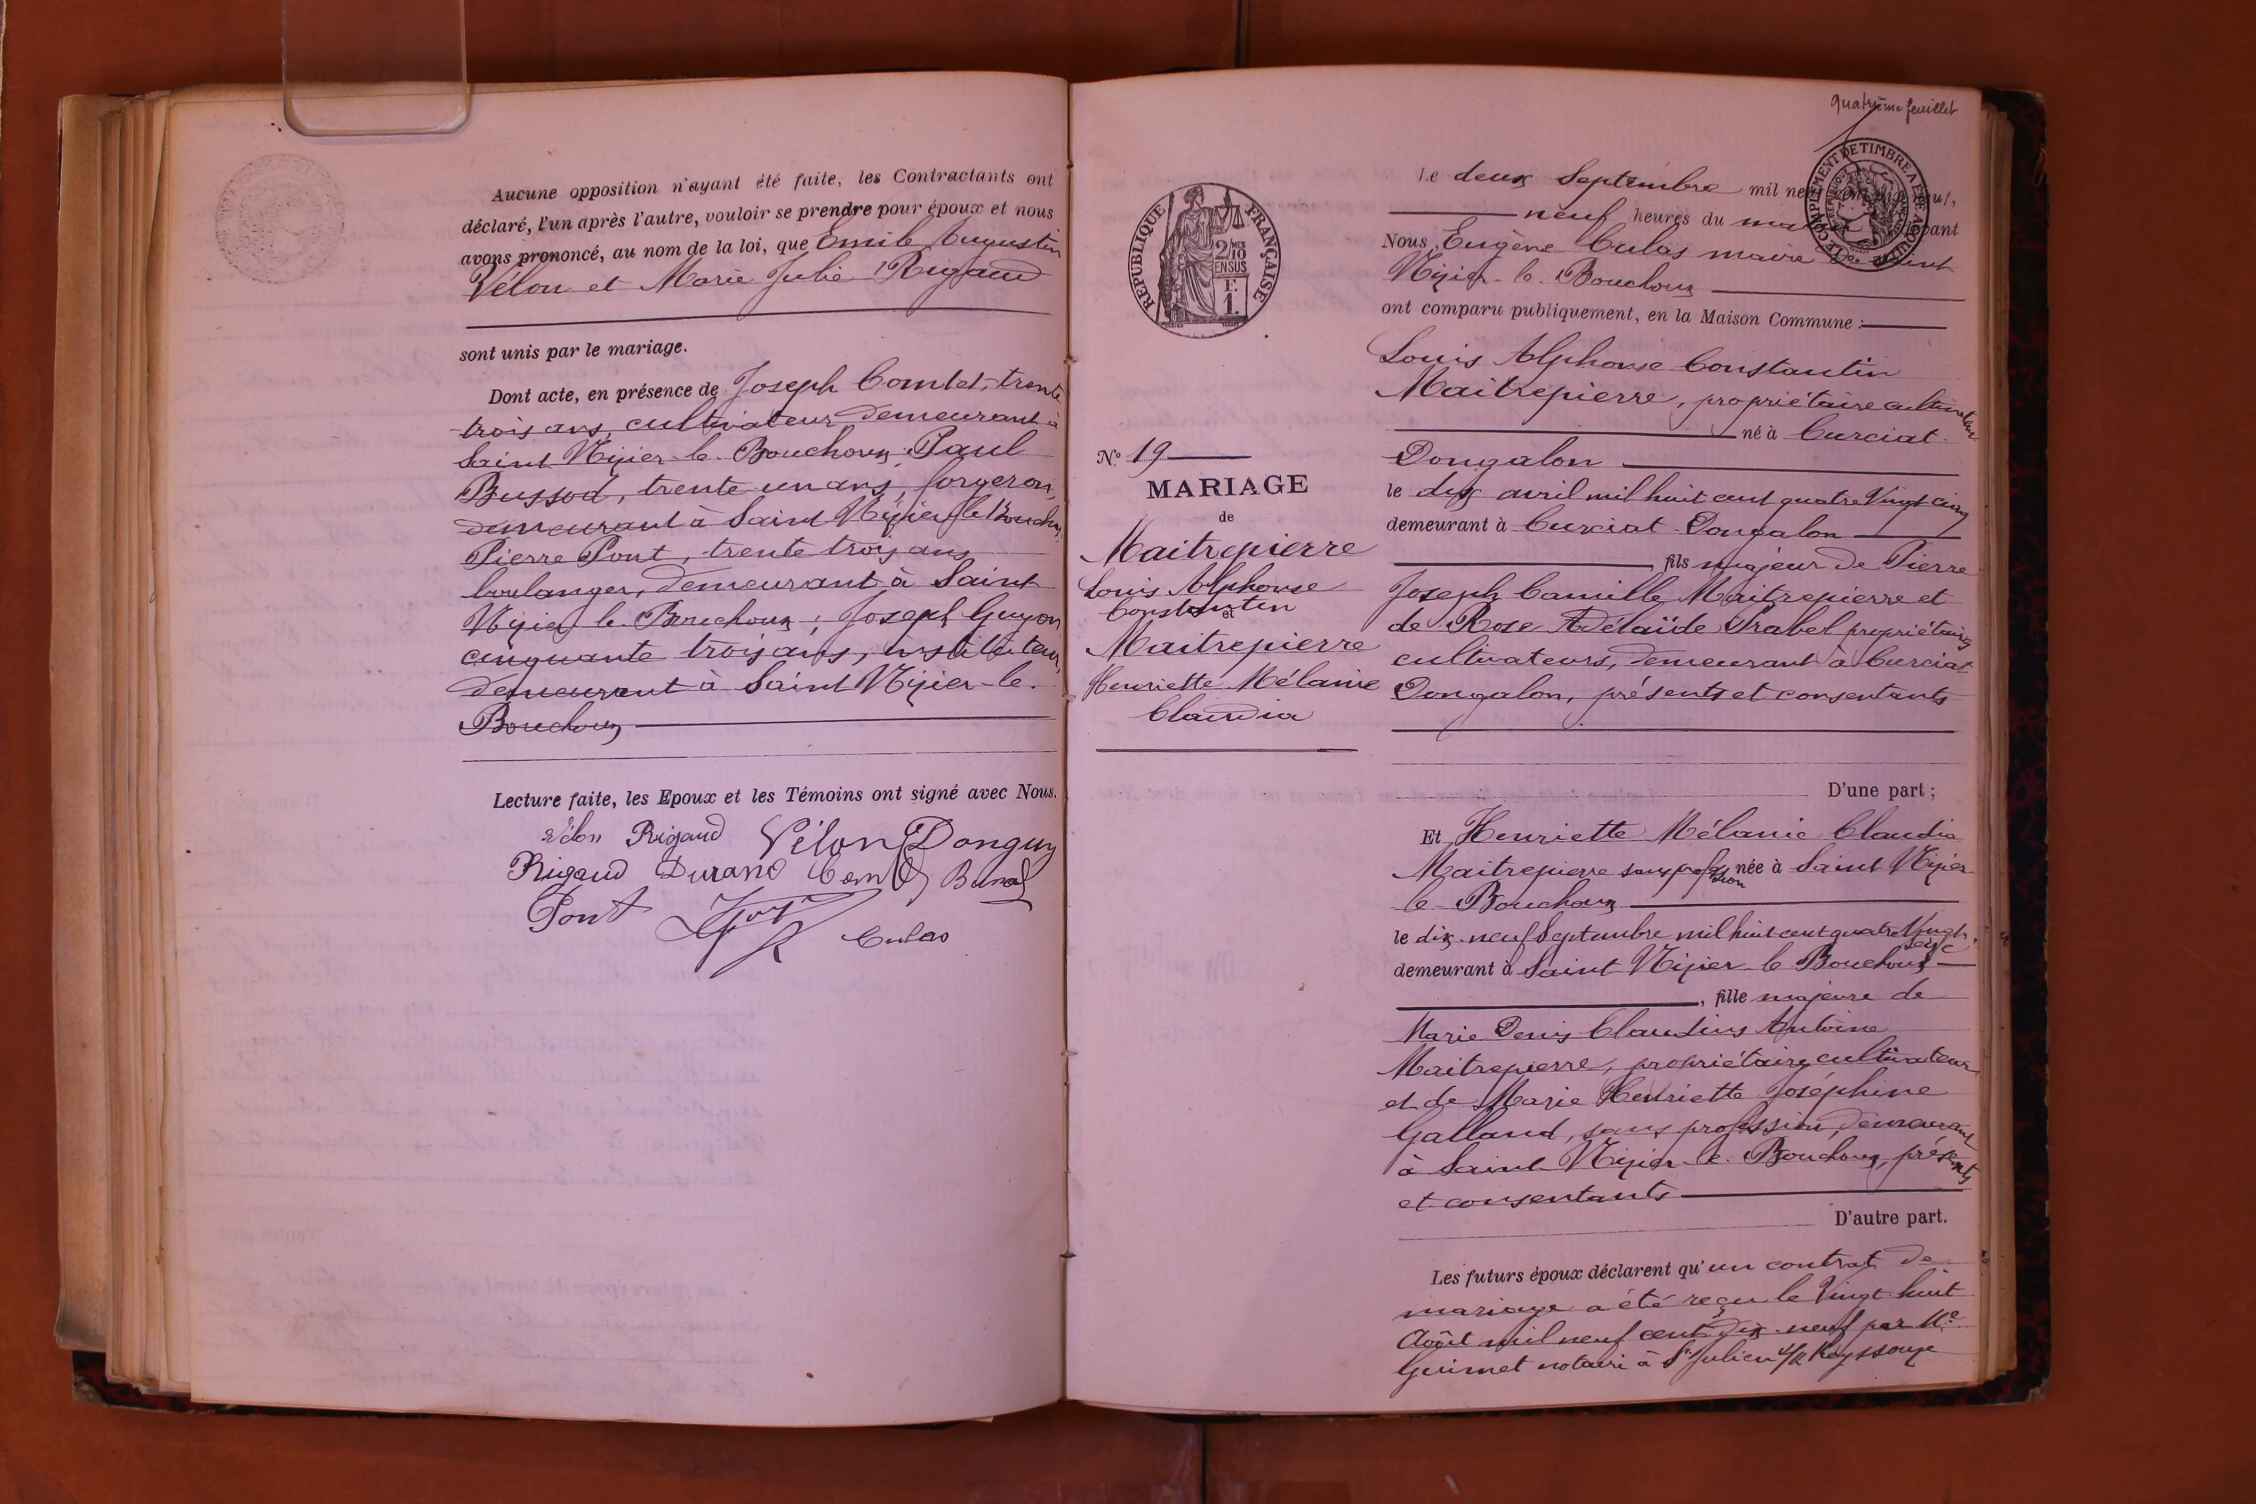 Aucune opposition n'ayant été faite, les Contractants ont
déclaré, l'un après l'autre, vouloir se prendre pour époux et nous
avons prononcé, au nom de la loi, que Emile Augustin
Vélon et Marie Julie Rigaud
sont unis par le mariage.
Dont acte, en présence de Joseph Comtet, trente
trois ans, cultivateur demeurant à
Saint Nizier-le-Bouchoux, Paul
trente un ans, forgeron,
demeurant à Saint Nizier le Bouchoux,
Pierre Pont, trente trois ans
boulanger, demeurant à Saint
Nizier le Bouchoux; Joseph Guyon
cinquante trois ans, instituteur,
demeurant à Saint Nizier-le-
Bouchoux
Lecture faite, les Epoux et les Témoins ont signé avec Nous.
Vélon Rigaud Vélon Donguy
Rigaud Durand Comtet
Pont
Culas
quatrième feuillet
LE COMPLEMENT DE TIMBRE A ETE ACQUITTE
REPUBLIQUE FRANÇAISE
2/10 EN SUS
F. 1.
Le deux Septembre mil neuf cent dix neuf,
neuf heures du matin
Nous, Eugène Culas maire de Saint
Nizier-le-Bouchoux
ont comparu publiquement, en la Maison Commune :
Louis Alphonse Constantin
Maitrepierre, propriétaire cultivateur
né à Curciat
Dongalon
le dix avril mil huit cent quatre Vingt cinq
demeurant à Curciat Dongalon
, fils majeur de Pierre
Joseph Camille Maitrepierre et
de Rose Adélaïde Prabel propriétaires
cultivateurs, demeurant à Curciat
Dongalon, présents et consentants
D'une part ;
No 19
MARIAGE
de
Maitrepierre
Louis Alphonse
Constantin
et
Maitrepierre
Henriette Mélanie
Claudia
Et Henriette Mélanie Claudia
Maitrepierre sans profession née à Saint Nizier
le Bouchoux
le dix-neuf Septembre mil huit cent quatre Vingt
seize
demeurant à Saint Nizier le Bouchoux
, fille majeure de
Marie Denis Claudius Antoine
Maitrepierre, propriétaire cultivateur
et de Marie Henriette Joséphine
Galland, sans profession, demeurant
à Saint Nizier-le-Bouchoux, présents
et consentants
D'autre part.
Les futurs époux déclarent qu'un contrat de
mariage a été reçu le Vingt huit
Août mil neuf cent dix-neuf par Me
Guimet notaire à St Julien s/R Reyssouze